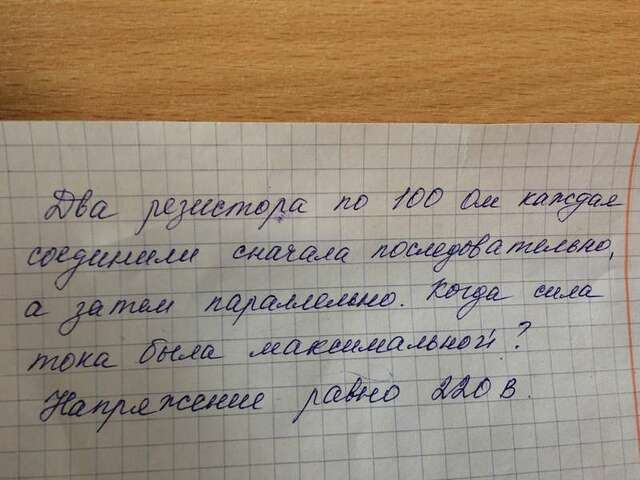 Два резистора по 100 Ом каждая
соединили сначала последовательно,
а затем параллельно. Когда сила
тока была максимальной?
Напряжение равно 220 В.